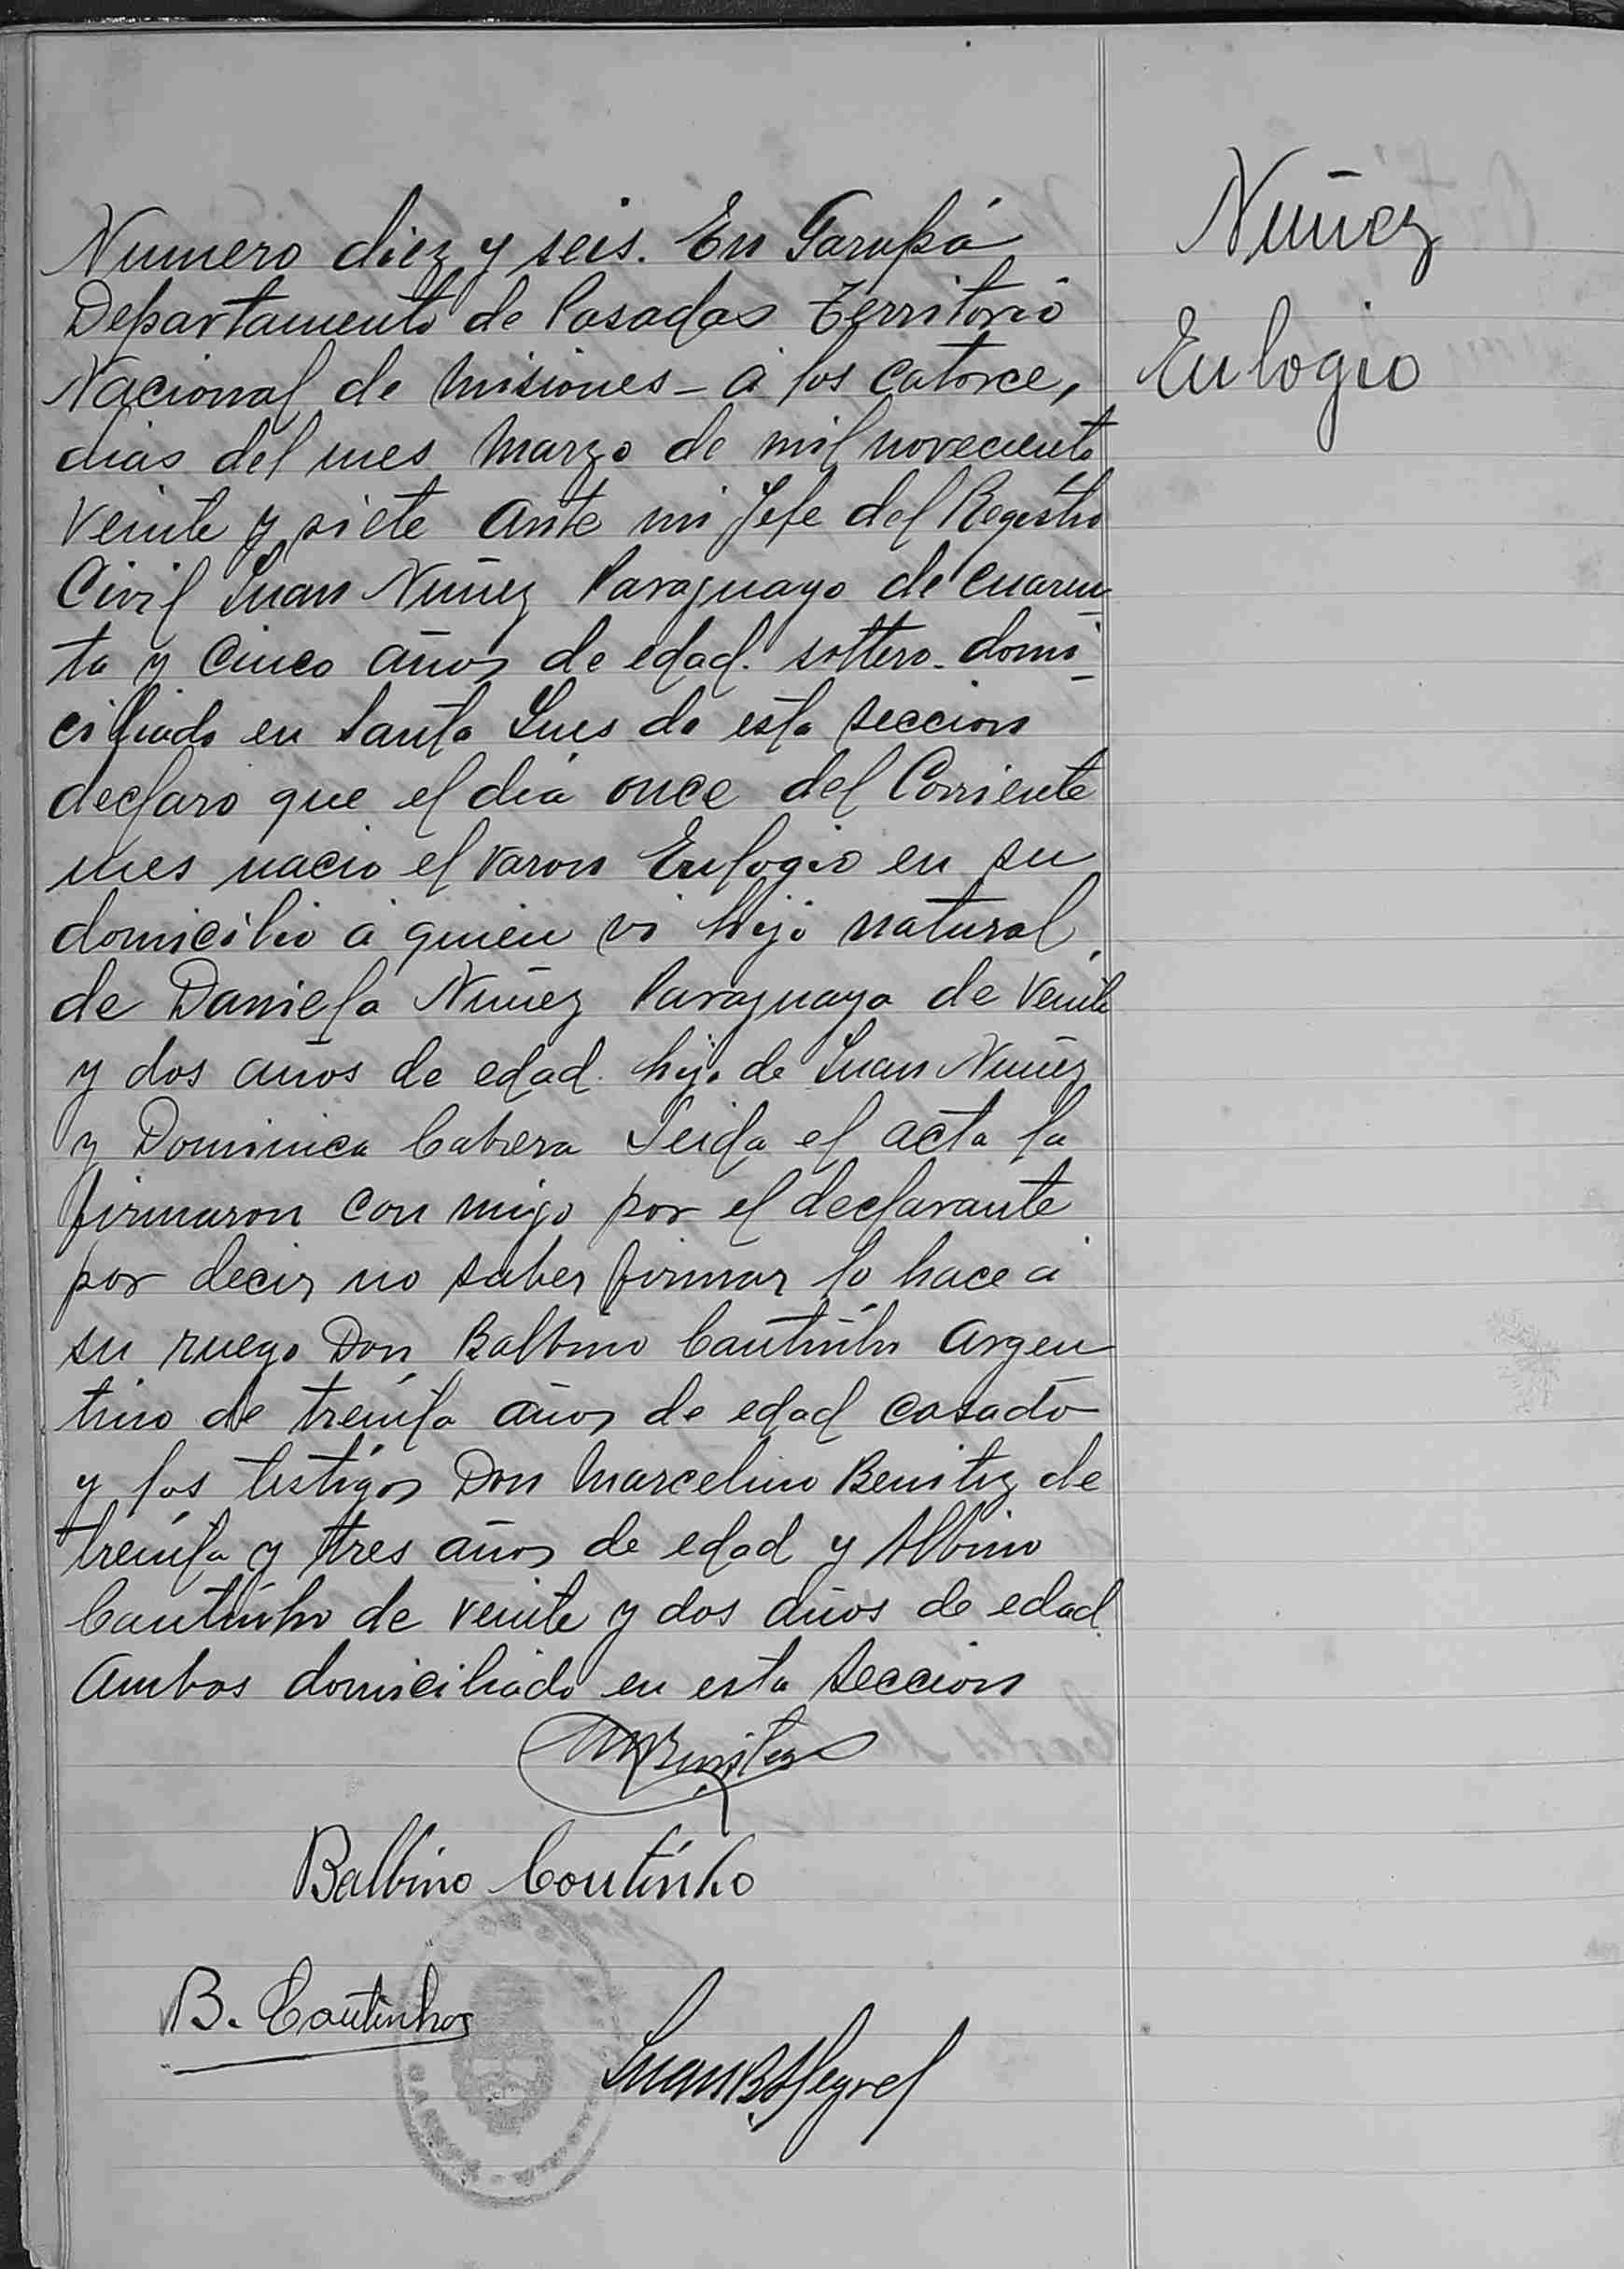 Nuñez
Eulogio
Numero diez y seis. En Garupá
Departamento de Posadas Territorio
Nacional de Misiones - á los catorce,
dias del mes Marzo de mil noveciento
veinte y siete ante mi Jefe del Registro
Civil Juan Nuñez Paraguayo de cuaren
ta y cinco años de edad. soltero. domi
ciliado en Santa Ines de esta seccion
declaro que el dia once del Corriente
mes nacio el varon Eulogio en su
domicilio á quien vi hijo natural
de Daniela Nuñez Paraguaya de veinte
y dos años de edad. hija de Juan Nuñez
y Dominica Cabrera Leida el acta la
firmaron con migo por el declarante
por decir no saber firmar lo hace á
su ruego Don Balbino Cautinho argen
tino de treinta años de edad casado
y los testigos Don Marcelino Benitez de
treinta y tres años de edad y Albino
Cautinho de veinte y dos años de edad.
Ambos domiciliado en esta seccion
MBenitez
Balbino Coutinho
B. Coutinho
Juan B